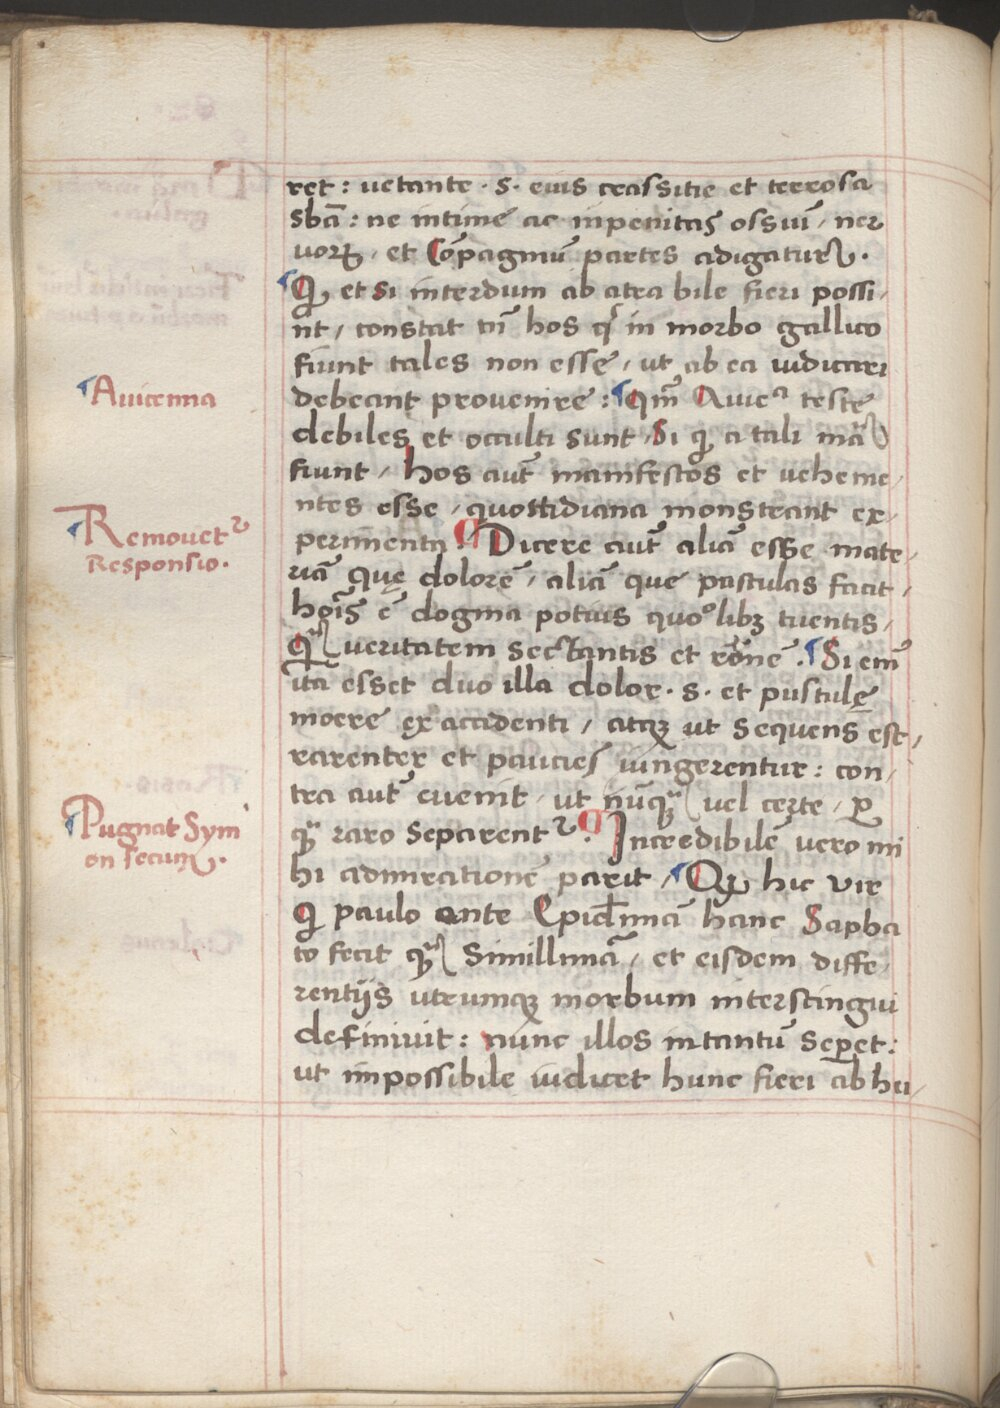 ret: uetante · s · eius crassitie et terrosa
sbā: ne intime ac inpenitas ossiū, ner
uorꝝ, et cōpaginū partes adigatur.
Qꝫ et si interdum ab atra bile fieri possi,
nt, constat tn̄ hos qͥ in morbo gallico
fiunt tales non esse, ut ab ea iudicari
Auicenna
debeant prouenire: qm̄ Auiceᵃ teste
debiles et occulti sunt, Si qͥ a tali mā
fiunt, hos aut̄ manifestos et uehemē,
ntes esse, quottidiana monstrant ex,
Remouetᷣ
Responsio.
perimenta. Dicere aut̄ aliā esse mate,
riā quę dolorē, aliā que pustulas facit,
hoīs ē dogma potius quoᵒlibꝫ tuentis,
qᷓ ueritatem sectantis et rōne. Si em̄
ita esset duo illa dolor · s · et pustulę
moere ex accidenti, atqꝫ ut sequens est,
rarenter et paucies iungerentur: con,
tra aut̄ euenit, ut nūqᷓ uel certe, ꝑ
Pugnat Sym
on secum.
qᷓ raro separentᷣ. Incredibile uero mi
hi admirationē parit, Qꝫ hic vir
qͥ paulo ante Epidimiā hanc Sapha
to fecit qᷓ Simillimā, et eisdem diffe,
rentijs utrumqꝫ morbum interstingui
definiuit: nunc illos intantū seꝑet:
ut impossibile iudicet hunc fieri ab hu,